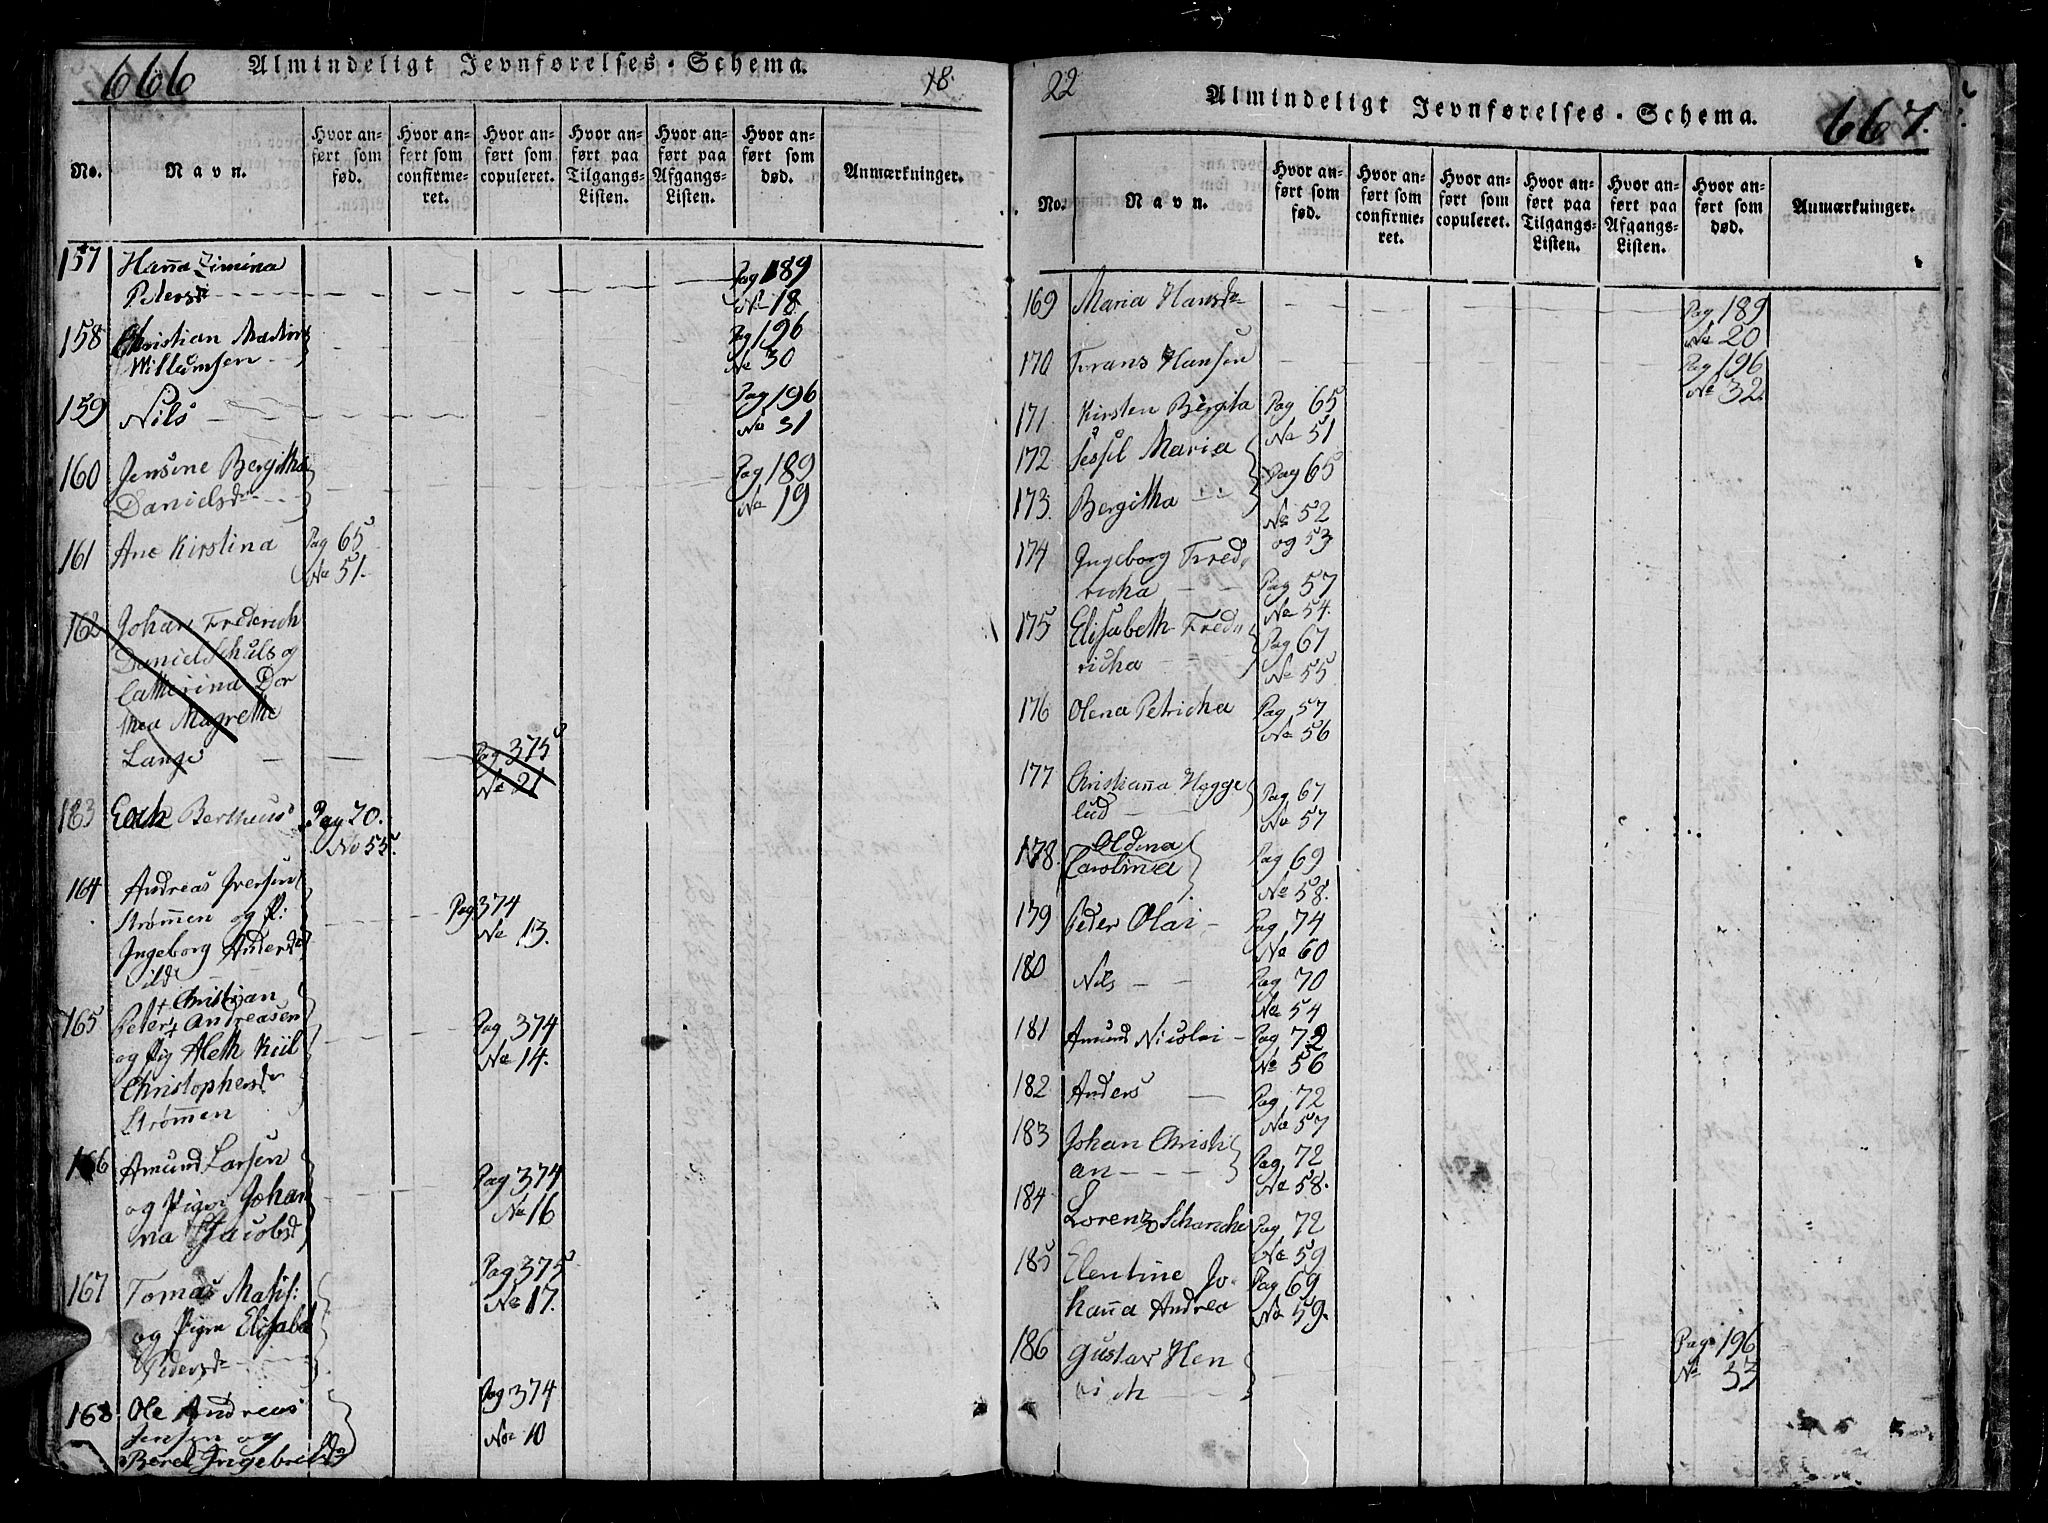 666
Almindeligt Jevnførelses-Schema.
18.
No.
Navn.
Hvor an-
ført som
fød.
Hvor an-
ført som
confirme-
ret.
Hvor an-
ført som
copuleret.
Hvor an-
ført paa
Tilgangs-
Listen.
Hvor an-
ført paa
Afgangs-
Listen.
Hvor an-
ført som
død.
Anmærkninger.
157 Hanna Pag 189
Petersdr No 18
158 Christian Martin Pag 196
Willumsen No 30
159 Nils Pag 196
No 31
160 Jensine Bergitha Pag 189
Danielsdr No 19
161 Ane Kirstina Pag 65
No 51.
162 Johan Frederich
Daniel Schuls og
Catherina Dor
thea Magrethe
Lange Pag 375
No 21
183 Bertheus Pag 70.
No 55.
164 Andreas Iversen
Strømen og P: Pag 374
Ingeborg Andersd No 13.
165 + Christian
Peter + Andreasen Pag 374
og Pig Aleth Kiil No 14.
Christophersdr
Strømen
166 Amund Larsen Pag 374
og Pigen Johan No 16
na Jacobsd
167 Tomas Mats: Pag 375
og Pigen Elisabet No 17.
Pedersdr
168 Ole Andreas Pag 374
Jensen og No 10
Beret Ingebrilsdr
22
Almindeligt Jevnførelses-Schema.
667.
No.
Navn.
Hvor an-
ført som
fød.
Hvor an-
ført som
confirme-
ret.
Hvor an-
ført som
copuleret.
Hvor an-
ført paa
Tilgangs-
Listen.
Hvor an-
ført paa
Afgangs-
Listen.
Hvor an-
ført som
død.
Anmærkninger.
169 Maria Hansdr Pag 189
No 20
170 Frans Hansen Pag 196
No 32.
171 Kirsten Bergita Pag 65
No 51
172 Sessil Maria
173 Bergitha Pag 65
No 52
og 53
174 Ingeborg Fred
richa Pag 57
No 54.
175 Elisabeth Fred
richa Pag 67
No 55
176 Olena Petricha Pag 57
No 56
177 Christiana Hegge
lud Pag 67
No 57
178. Oldena
Carolina Pag 69
No 58.
179 Peder Olai Pag 74
No 60
180 Nils Pag 70
No 54
181 Amund Nicolai Pag 72
No 56
182 Anders Pag 72
No 57
183 Johan Christi
an Pag 72
No 58.
184 Lorentz Schanche Pag 72
No 59
185 Elentine Jo-
hanna Andrea Pag 69
No 59.
186 Gustav Hen
rich Pag 196
No 33